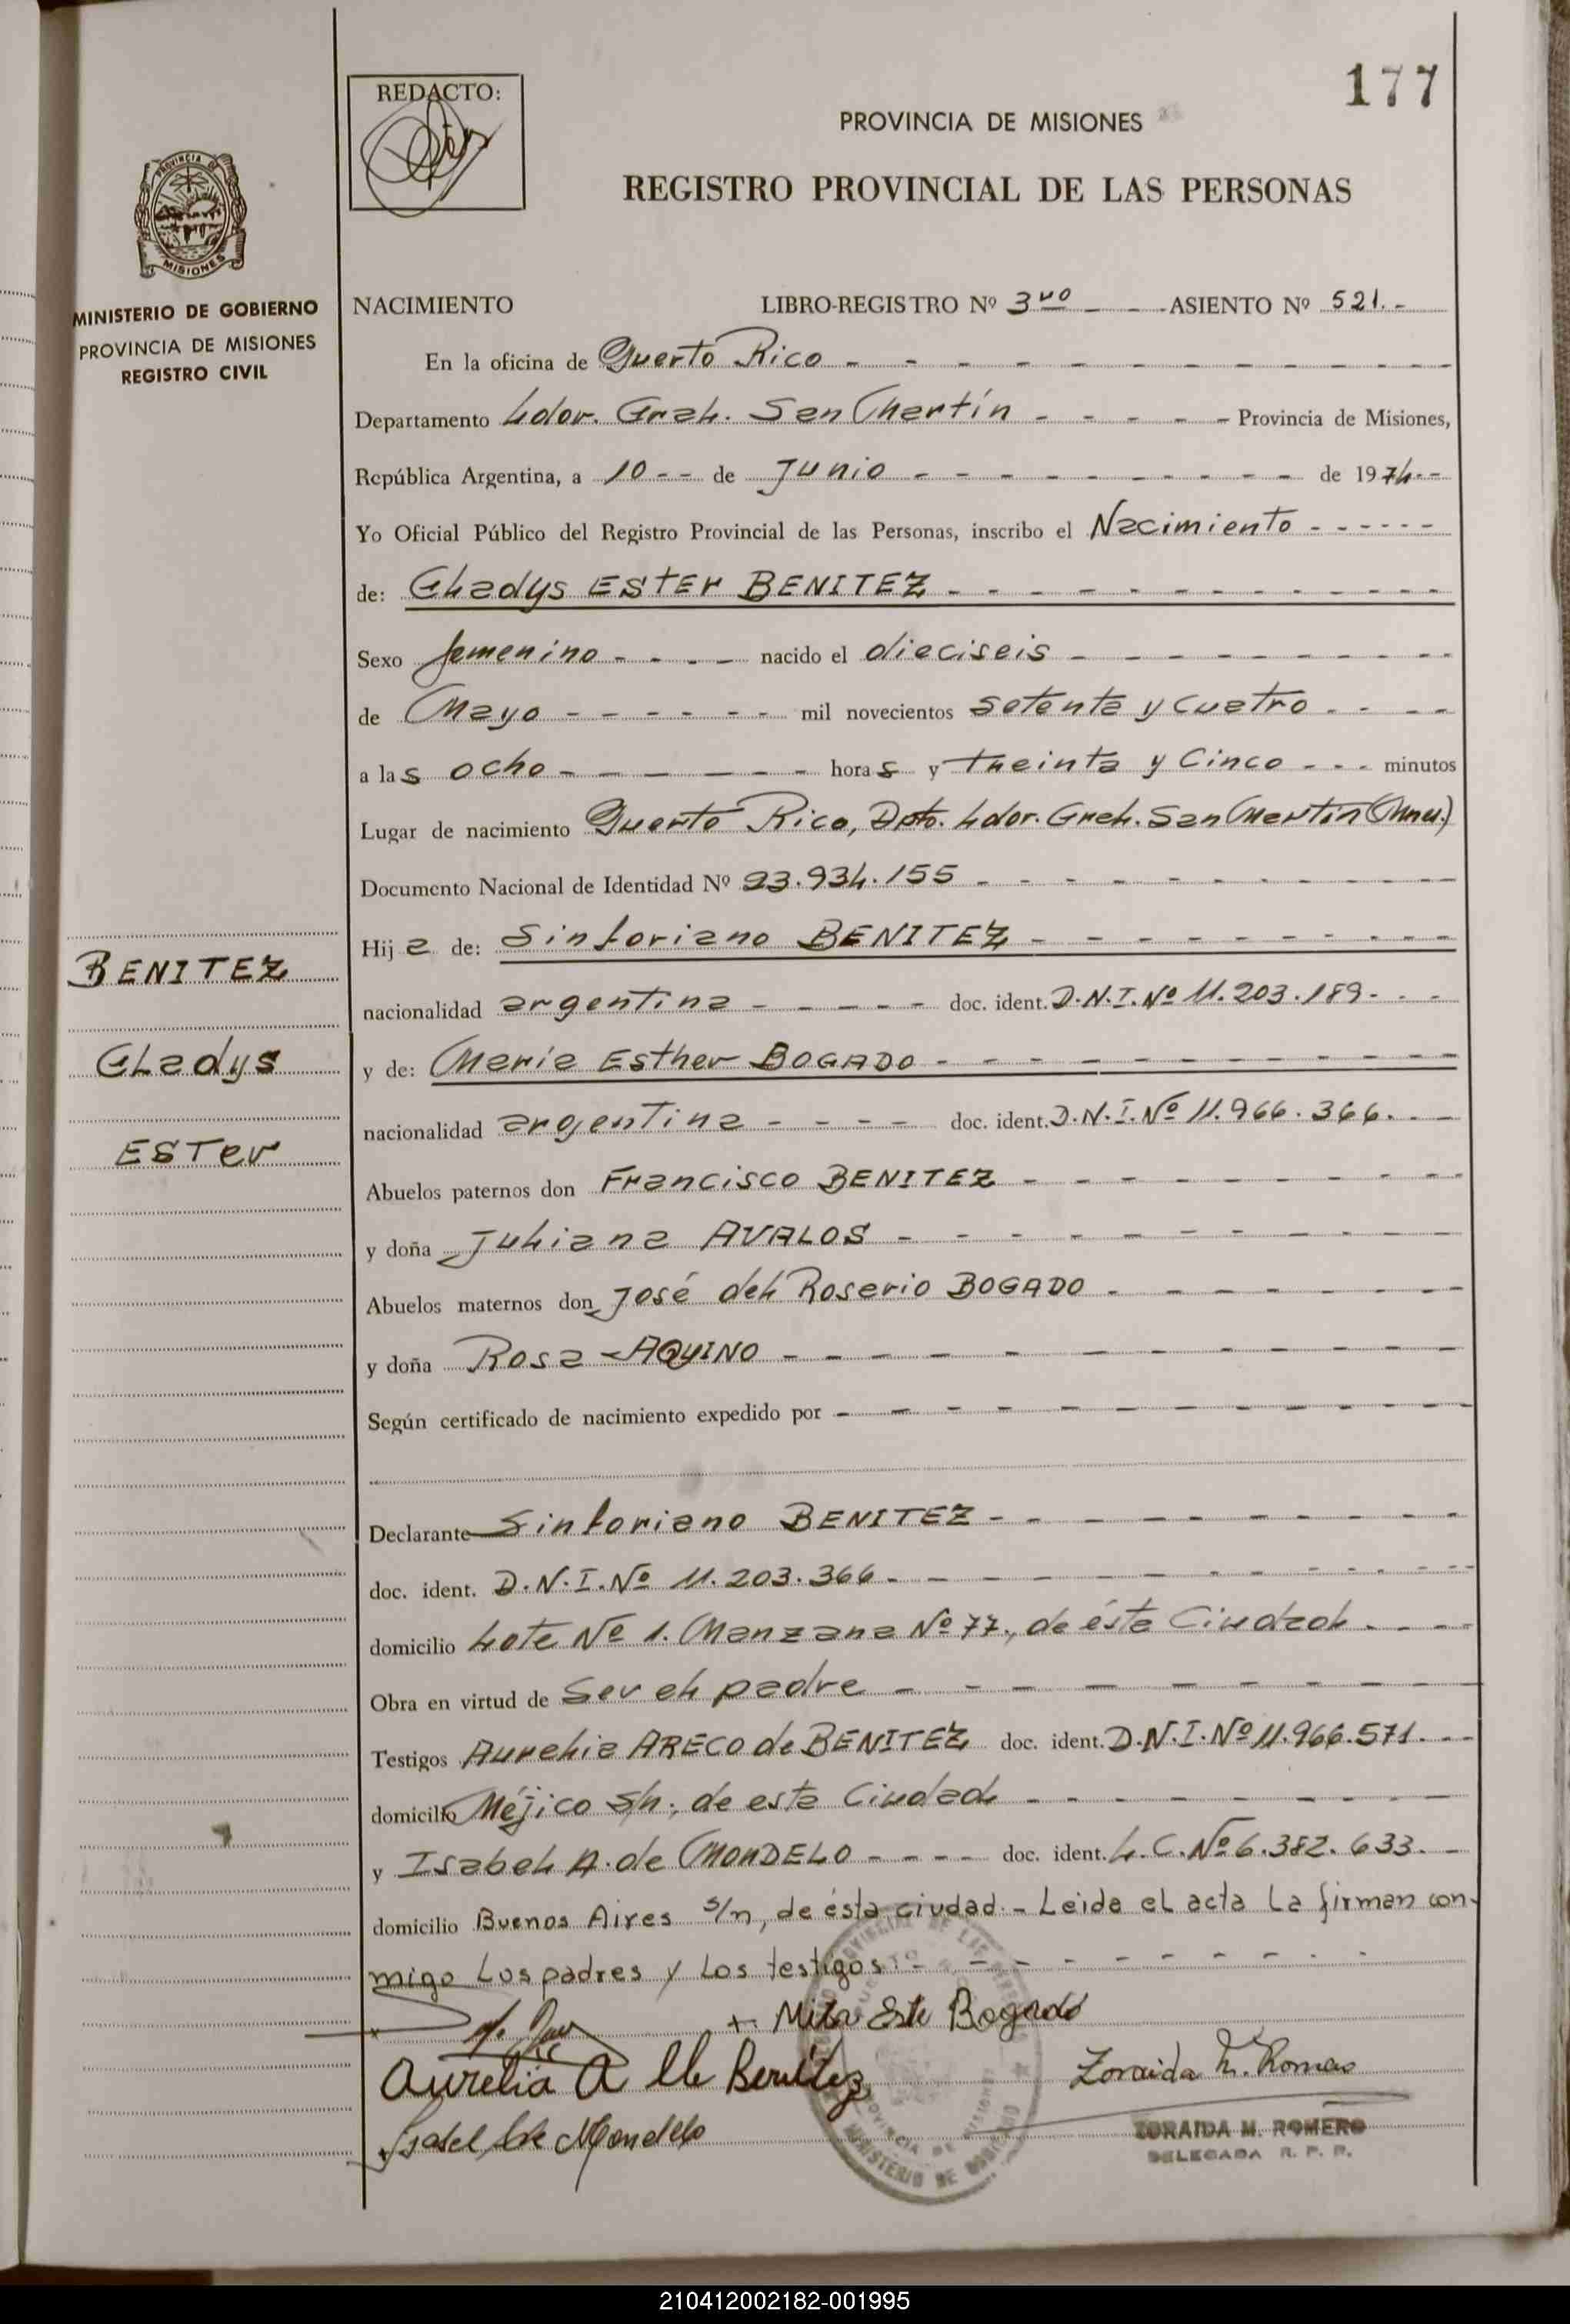 177
REDACTO:
PROVINCIA DE MISIONES
REGISTRO PROVINCIAL DE LAS PERSONAS
PROVINCIA DE
MISIONES
MINISTERIO DE GOBIERNO
PROVINCIA DE MISIONES
REGISTRO CIVIL
NACIMIENTO LIBRO-REGISTRO Nº 3ro - - - ASIENTO Nº 521.-
En la oficina de Puerto Rico - - - - - - - - - - -
Departamento Ldor. Gral. San Martín - - - - - Provincia de Misiones,
República Argentina, a 10 - - de Junio - - - - - - - - - de 1974.--
Yo Oficial Público del Registro Provincial de las Personas, inscribo el Nacimiento - - - - - -
de: Gladys ESTEr BENITEZ - - - - - - - - - - -
Sexo femenino - - - - nacido el dieciseis - - - - - - - -
de Mayo - - - - - - - mil novecientos Setenta y Cuatro - - - -
a las ocho - - - - - - horas y treinta y Cinco - - - minutos
Lugar de nacimiento Puerto Rico, Dpto. Ldor. Gral. San Martín (Mnes.)
Documento Nacional de Identidad Nº 23.934.155 - - - - - - - - -
Hija de: Sinforiano BENITEZ - - - - - - - - -
nacionalidad argentina - - - - - doc. ident. D.N.I.Nº 11.203.189 - - -
BENITEZ
Gladys
ESTer
y de: María Esther BOGADO - - - - - - - - - -
nacionalidad argentina - - - - doc. ident. D.N.I.Nº 11.966.366. - -
Abuelos paternos don Francisco BENITEZ - - - - - - - - -
y doña Juliana AVALOS - - - - - - - - - -
Abuelos maternos don José del Rosario BOGADO - - - - - - -
y doña Rosa AQUINO - - - - - - - - - - - -
Según certificado de nacimiento expedido por - - - - - - - - - - - -
Declarante Sinforiano BENITEZ - - - - - - - - - -
doc. ident. D.N.I.Nº 11.203.366 - - - - - - - - - - -
domicilio Lote Nº 1. Manzana Nº 77., de ésta Ciudad - - - -
Obra en virtud de Ser el padre - - - - - - - - - -
Testigos Aurelia ARECO de BENITEZ doc. ident. D.N.I.Nº 11.966.571. - -
domicilio Méjico s/n; de esta Ciudad - - - - - - - -
y Isabel A. de MONDELO - - - - doc. ident. L.C.Nº 6.382.633. -
domicilio Buenos Aires s/n, de ésta ciudad.- Leida el acta la firman con-
migo Los padres y Los testigos.- - - - - - - - - -
+ Bogado
Aurelia A de Benitez
Zoraida M. Romero
Isabel de Mondelo
ZORAIDA M. ROMERO
DELEGADA R. P. P.
PROVINCIA DE MISIONES
MINISTERIO DE GOBIERNO
210412002182-001995